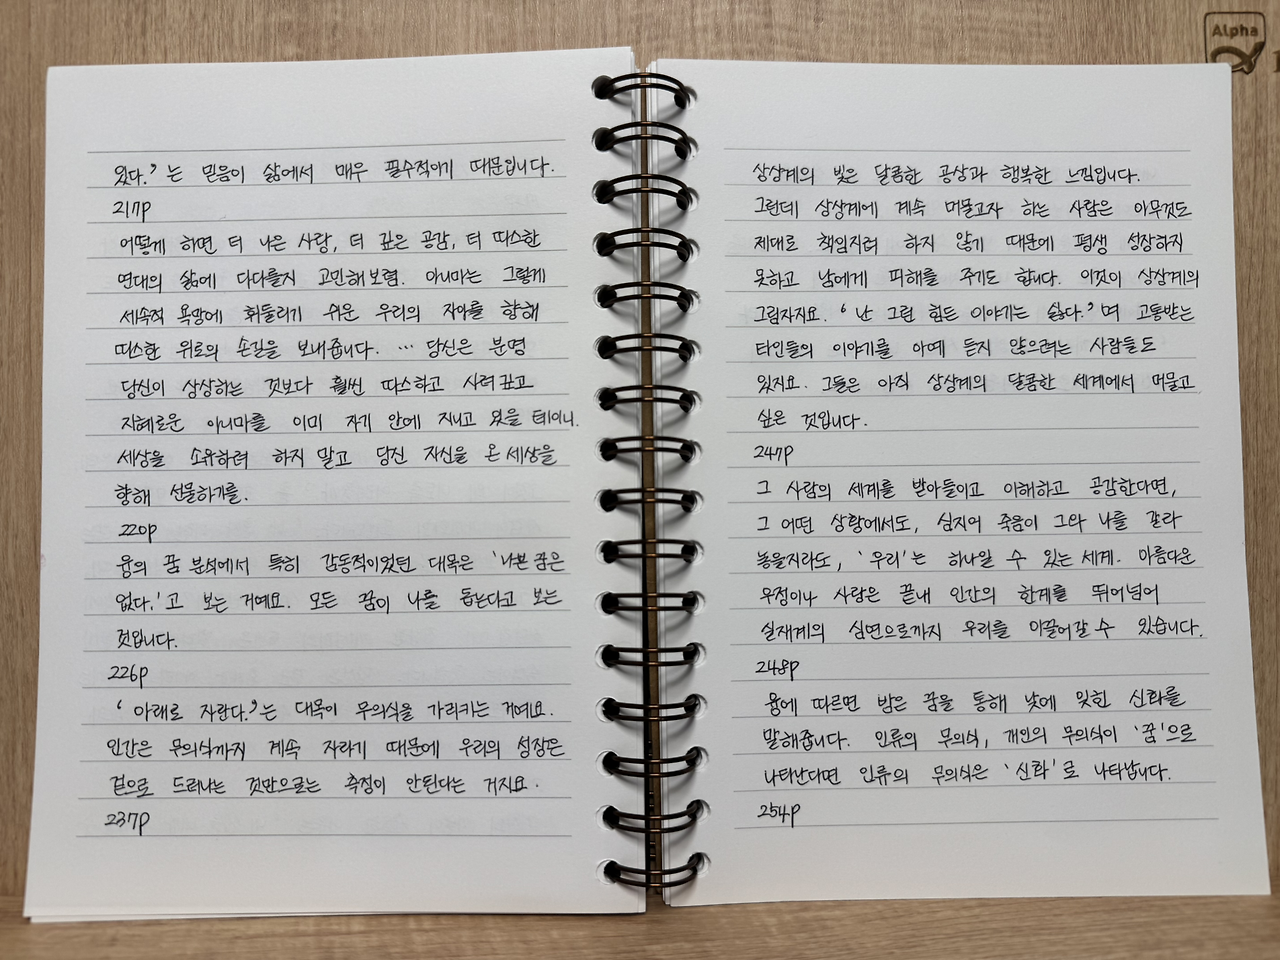 있다.'는 믿음이 삶에서 매우 필수적이기 때문입니다.
217p
어떻게 하면 더 나은 사랑, 더 깊은 공감, 더 따스한
연대의 삶에 다다를지 고민해보렴. 아니마는 그렇게
세속적 욕망에 휘둘리기 쉬운 우리의 자아를 향해
따스한 위로의 손길을 보내줍니다. … 당신은 분명
당신이 상상하는 것보다 훨씬 따스하고 사려깊고
지혜로운 아니마를 이미 자기 안에 지니고 있을 테이니.
세상을 소유하려 하지 말고 당신 자신을 온 세상을
향해 선물하기를.
220p
융의 꿈 분석에서 특히 감동적이었던 대목은 '나쁜 꿈은
없다.'고 보는 거예요. 모든 꿈이 나를 돕는다고 보는
것입니다.
226p
'아래로 자란다.'는 대목이 무의식을 가리키는 거예요.
인간은 무의식까지 계속 자라기 때문에 우리의 성장은
겉으로 드러나는 것만으로는 측정이 안된다는 거지요.
237p
상상계의 빛은 달콤한 공상과 행복한 느낌입니다.
그런데 상상계에 계속 머물고자 하는 사람은 아무것도
제대로 책임지려 하지 않기 때문에 평생 성장하지
못하고 남에게 피해를 주기도 합니다. 이것이 상상계의
그림자지요. '난 그런 힘든 이야기는 싫다.'며 고통받는
타인들의 이야기를 아예 듣지 않으려는 사람들도
있지요. 그들은 아직 상상계의 달콤한 세계에서 머물고
싶은 것입니다.
247p
그 사람의 세계를 받아들이고 이해하고 공감한다면,
그 어떤 상황에서도, 심지어 죽음이 그와 나를 갈라
놓을지라도, '우리'는 하나일 수 있는 세계. 아름다운
우정이나 사랑은 끝내 인간의 한계를 뛰어넘어
실재계의 심연으로까지 우리를 이끌어갈 수 있습니다.
248p
융에 따르면 밤은 꿈을 통해 낮에 잊힌 신화를
말해줍니다. 인류의 무의식, 개인의 무의식이 '꿈'으로
나타난다면 인류의 무의식은 '신화'로 나타납니다.
254p
Alpha